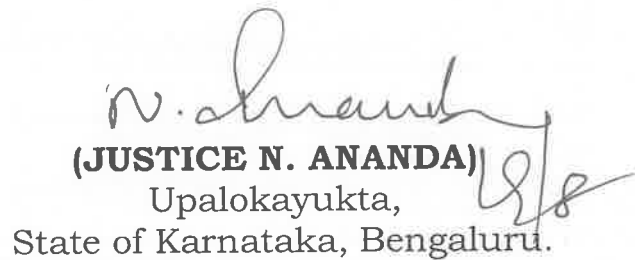 N. Ananda
(JUSTICE N. ANANDA)
Upalokayukta,
State of Karnataka, Bengaluru.